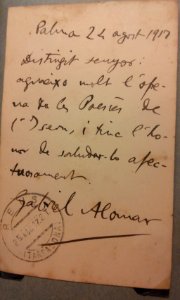 Palma 24 agost 1917
Distingit senyor:
agraeixo molt l'ofre-
na de les Poesies de
i tinc l'ho-
nor de saludar-lo afec-
tuosament.
Gabriel Alomar